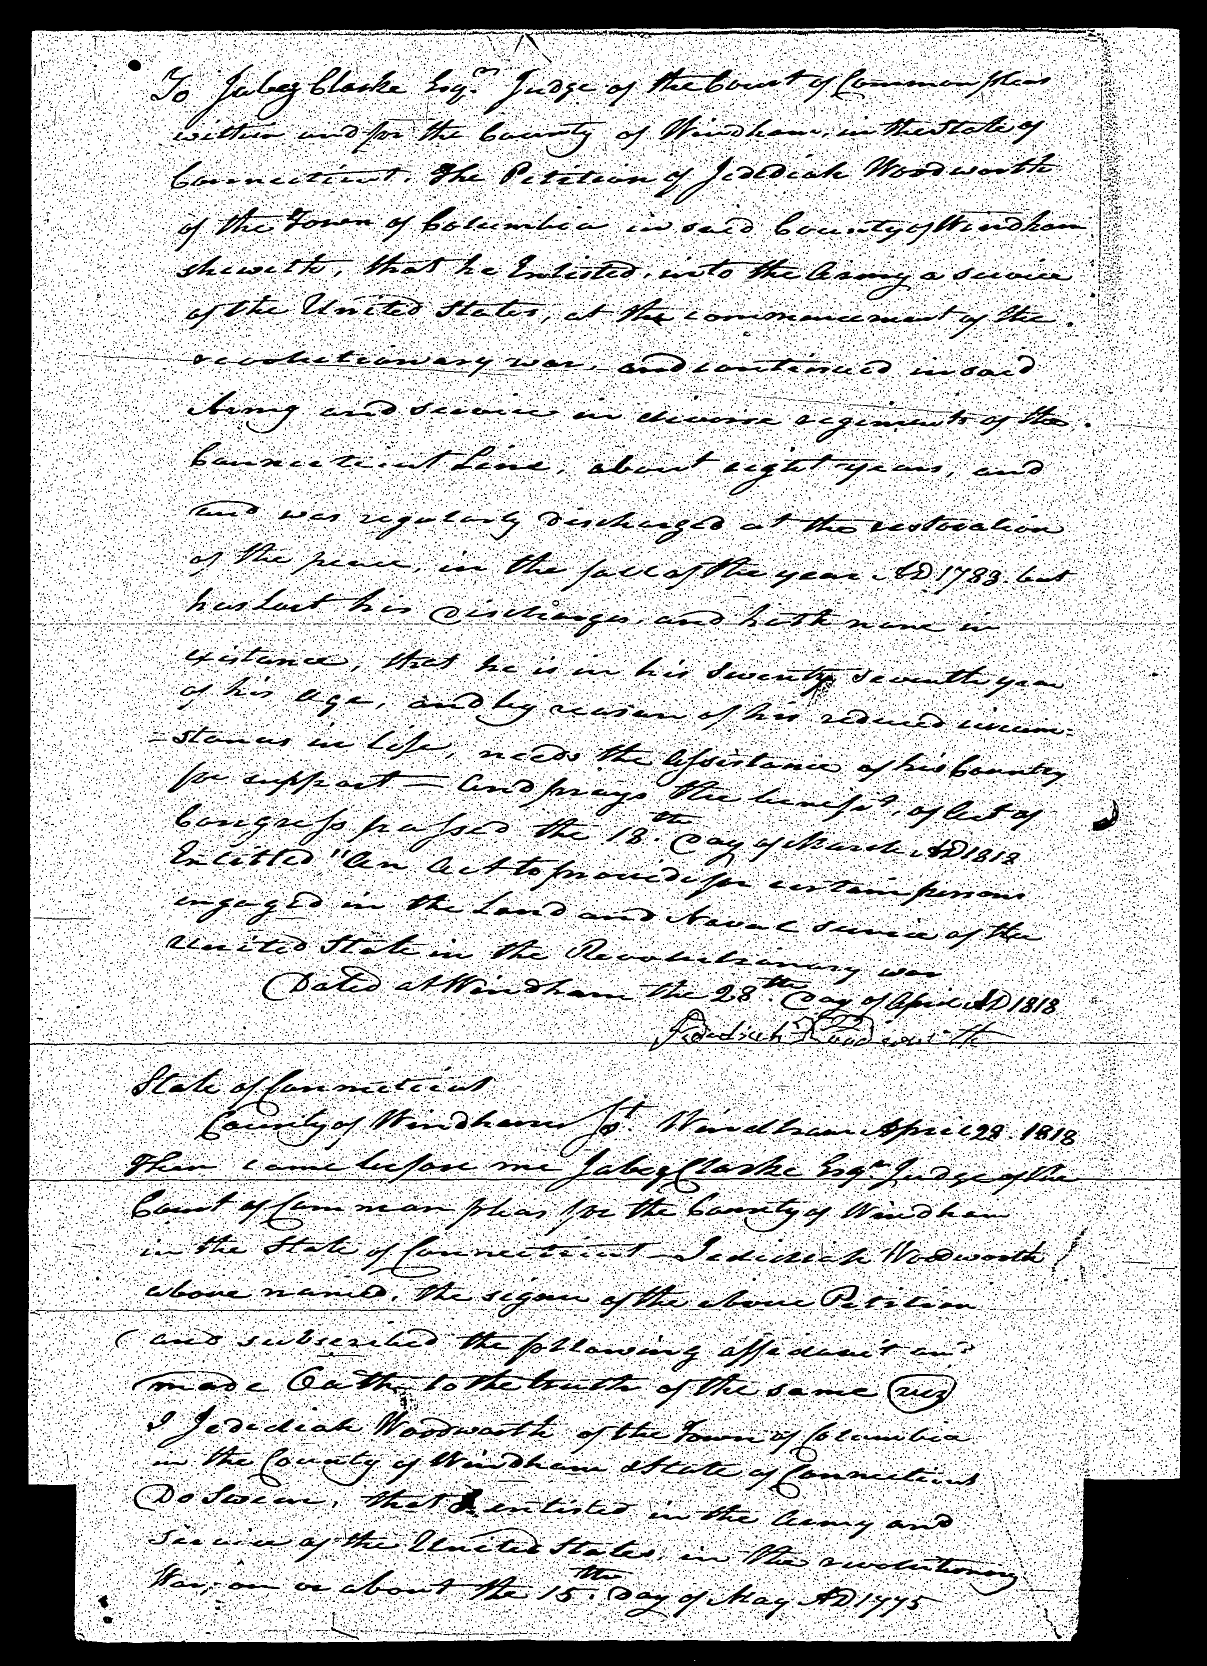 To Jabez Clarke Esqr. Judge of the Court of Common pleas
within and for the County of Windham, in the State of
Connecticut. The Petition of Jedediah Woodworth
of the Town of Columbia in said County of Windham
sheweth, that he Enlisted, into the Army & service
of the United States, at the commencement of the
revolutionary war, and continued in said
Army and service in diverse regiments of the
Connecticut Line, about eight years, and
and was regularly discharged at the restoration
of the peace, in the fall of the year AD 1783. but
has lost his Discharges, and hath none in
existance, that he is in his Seventy Seventh year
of his age, and by reason of his reduced circum=
=stances in life, needs the Assistance of his Country
for support — And prays the benefit, of Act of
Congress passed the 18.th Day of March AD 1818
Entitled "An Act to provide for certain persons
engaged in the Land and Naval service of the
United State in the Revolutionary war
Dated at Windham the 28.th Day of April AD 1818
Jedediah Woodworth
State of Connecticut
County of Windham Ss. Windham April 28. 1818
Then came before me Jabez Clarke Esqr. Judge of the
Court of Common pleas for the County of Windham
in the State of Connecticut — Jedidiah Woodworth
above named, the signer of the above Petition
and subscribed the following affidavit and
made Oath to the truth of the same viz
I Jedediah Woodworth of the Town of Columbia
in the County of Windham & State of Connecticut
Do Swear, that I enlisted in the Army and
service of the United States, in the revolutionary
War, on or about the 15.th Day of May AD 1775